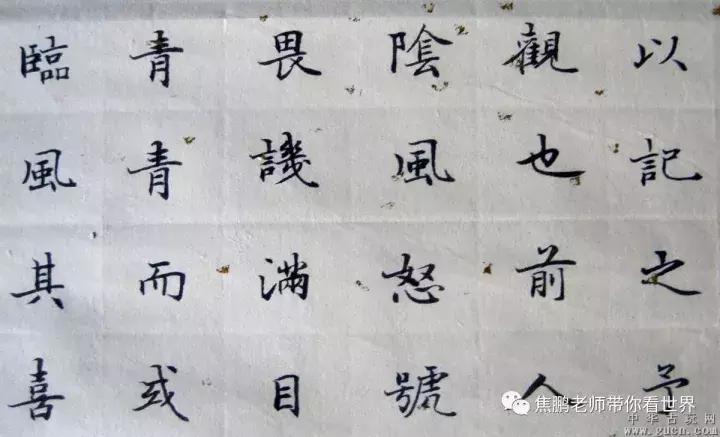 以記之
觀也前人
陰風怒號
畏譏滿目
青青而或
臨風其喜
焦鹏老师带你看世界
中华古玩网
www.gucn.com